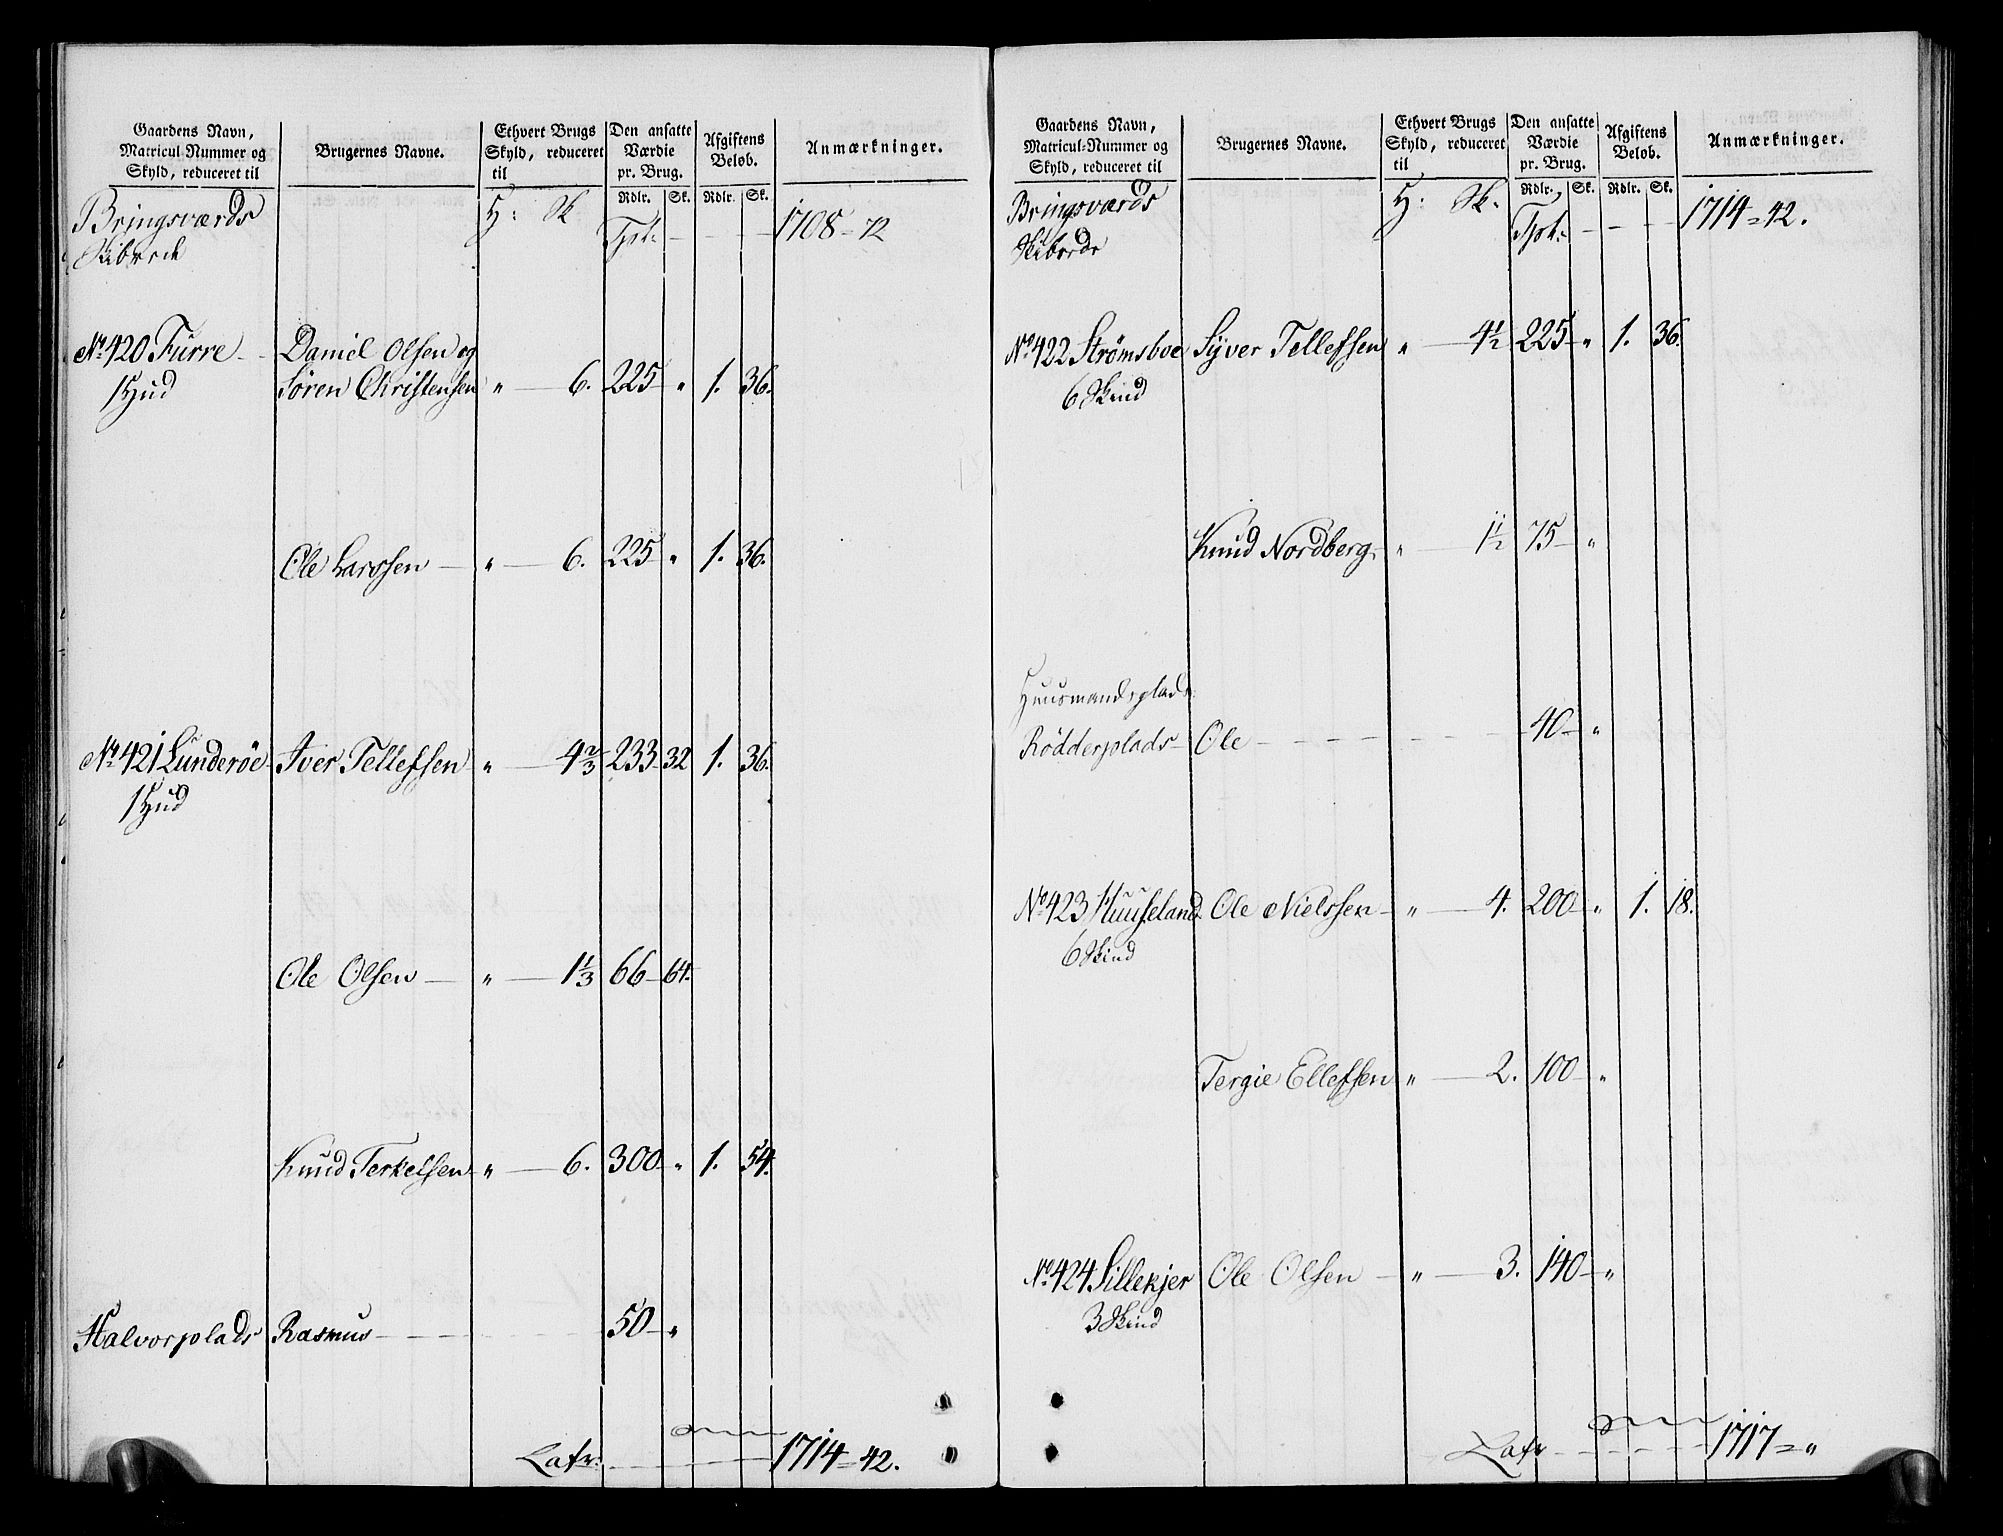 Gaardens Navn,
Matricul-Nummer og
Skyld, reduceret til
Brugernes Navne.
Ethvert Brugs
Skyld, reduceret
til
Den ansatte
Værdie
pr. Brug.
Rdlr. Sk.
Afgiftens
Beløb.
Rdlr. Sk.
Anmærkninger.
Bringsværds H: Sk Tpt: - - - 1708 = 72
Skibrede
No 420 Furre Daniel Olsen og
1 Hud Søren Christensen " 6. 225 " 1. 36.
Ole Larssen " 6. 225 " 1. 36.
No 421 Lunderöe Iver Tellefsen " 4 2/3 233 32 1. 36.
1 Hud
Ole Olsen " 1 1/3 66 64.
Knud Terkelsen " 6. 300 " 1. 54.
Halvorplads Rasmus 50 "
Latr: 1714 = 42.
Gaardens Navn,
Matricul-Nummer og
Skyld, reduceret til
Brugernes Navne.
Ethvert Brugs
Skyld, reduceret
til
Den ansatte
Værdie
pr. Brug.
Rdlr. Sk.
Afgiftens
Beløb.
Rdlr. Sk.
Anmærkninger.
Bringsværds H: Sk. Tpt: - - - 1714 = 42.
Skibrede
No 422 Strømsboe Syver Tellefsen " 4 1/2 225 " 1. 36.
6 Skind
Knud Nordberg " 1 1/2 75 "
Huusmandsplads
Rödderplads Ole 40 "
No 423 Huuseland Ole Nielssen " 4. 200 " 1. 18.
6 Skind
Tergie Ellefsen " 2. 100 "
No 424 Sillekjer Ole Olsen " 3. 140 "
3 Skind
Latr 1717 = "